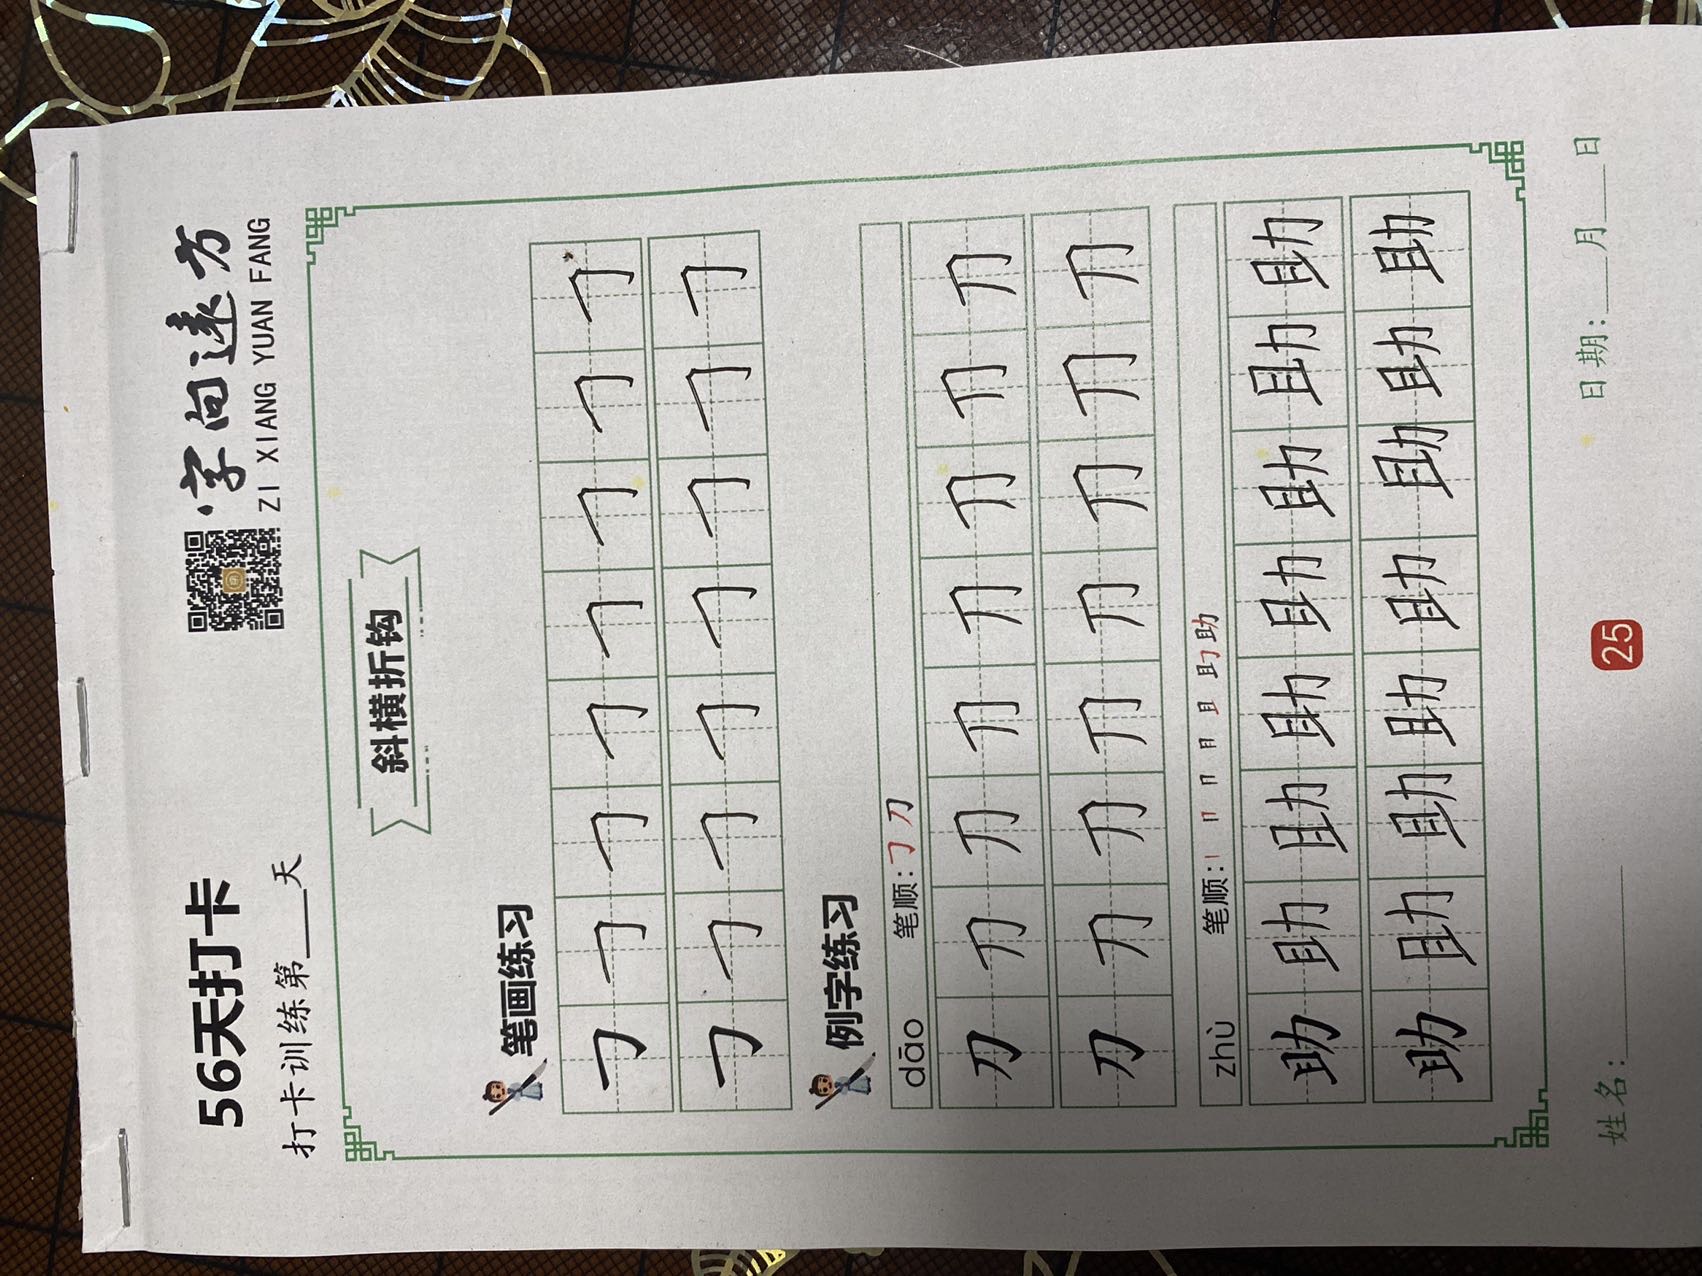 56天打卡
字向远方
ZI XIANG YUAN FANG
打卡训练第___天
斜横折钩
笔画练习
㇆㇆㇆㇆㇆㇆㇆㇆
㇆㇆㇆㇆㇆㇆㇆㇆
例字练习
dāo 笔顺:㇆刀
刀刀刀刀刀刀刀刀
刀刀刀刀刀刀刀刀
zhù 笔顺:丨 冂 月 目 且 助
助助助助助助助助
助助助助助助助助
姓名:______ 25 日期:___月___日